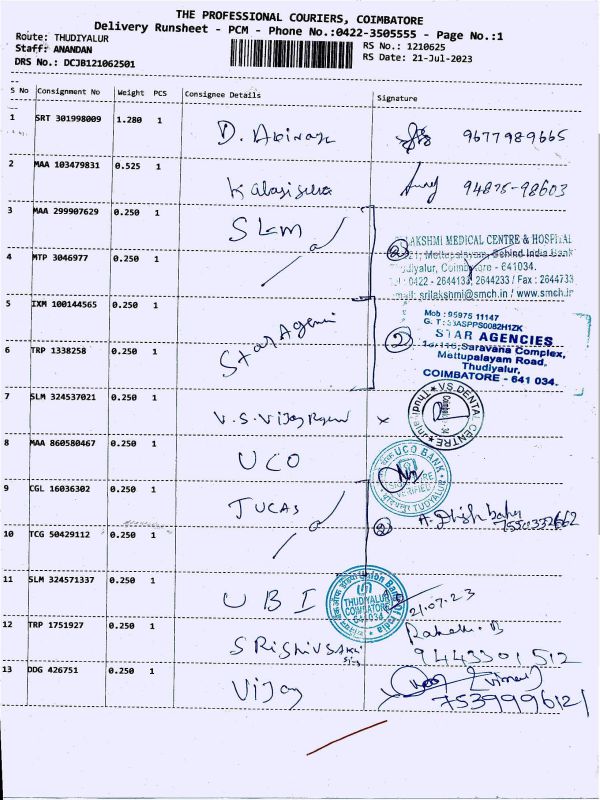 THE PROFESSIONAL COURIERS, COIMBATORE
Delivery Runsheet - PCM - Phone No.:0422-3505555 - Page No.:1
Route: THUDIYALUR
Staff: ANANDAN
DRS No.: DCJB121062501
RS No.: 1210625
RS Date: 21-Jul-2023
S No Consignment No Weight PCS Consignee Details Signature
1 SRT 301998009 1.280 1 9677989665
2 MAA 103479831 0.525 1 94875-98603
3 MAA 299907629 0.250 1 SLM
4 MTP 3046977 0.250 1
2
LAKSHMI MEDICAL CENTRE & HOSPITAL
Mettupalayam, Behind India Bank
udiyalur, Coimbatore - 641034.
: 0422 - 2644133, 2644233 / Fax : 2644733
mail: srilakshmi@smch.in / www.smch.in
5 IXM 100144565 0.250 1 Star Agenci
6 TRP 1338258 0.250 1
2
Mob : 95975 11147
STAR AGENCIES
Saravana Complex,
Mettupalayam Road,
Thudiyalur,
COIMBATORE - 641 034.
7 SLM 324537021 0.250 1 V.S. Vijay
V.S DENTAL CENTRE
8 MAA 860580467 0.250 1 UCO
UCO BANK
SIGNATURE VERIFIED
THUDIYALUR
9 CGL 16036302 0.250 1 JUCAS
10 TCG 50429112 0.250 1
2 7550332662
11 SLM 324571337 0.250 1 UBI
Union Bank of India
THUDIYALUR
COIMBATORE
641034
21.07.23
12 TRP 1751927 0.250 1 9443301512
13 DDG 426751 0.250 1 Vijay 7539996121